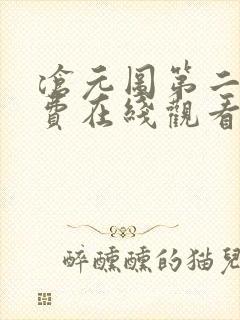 滄元圖第二
費在綫觀看
醉醺醺的猫兒